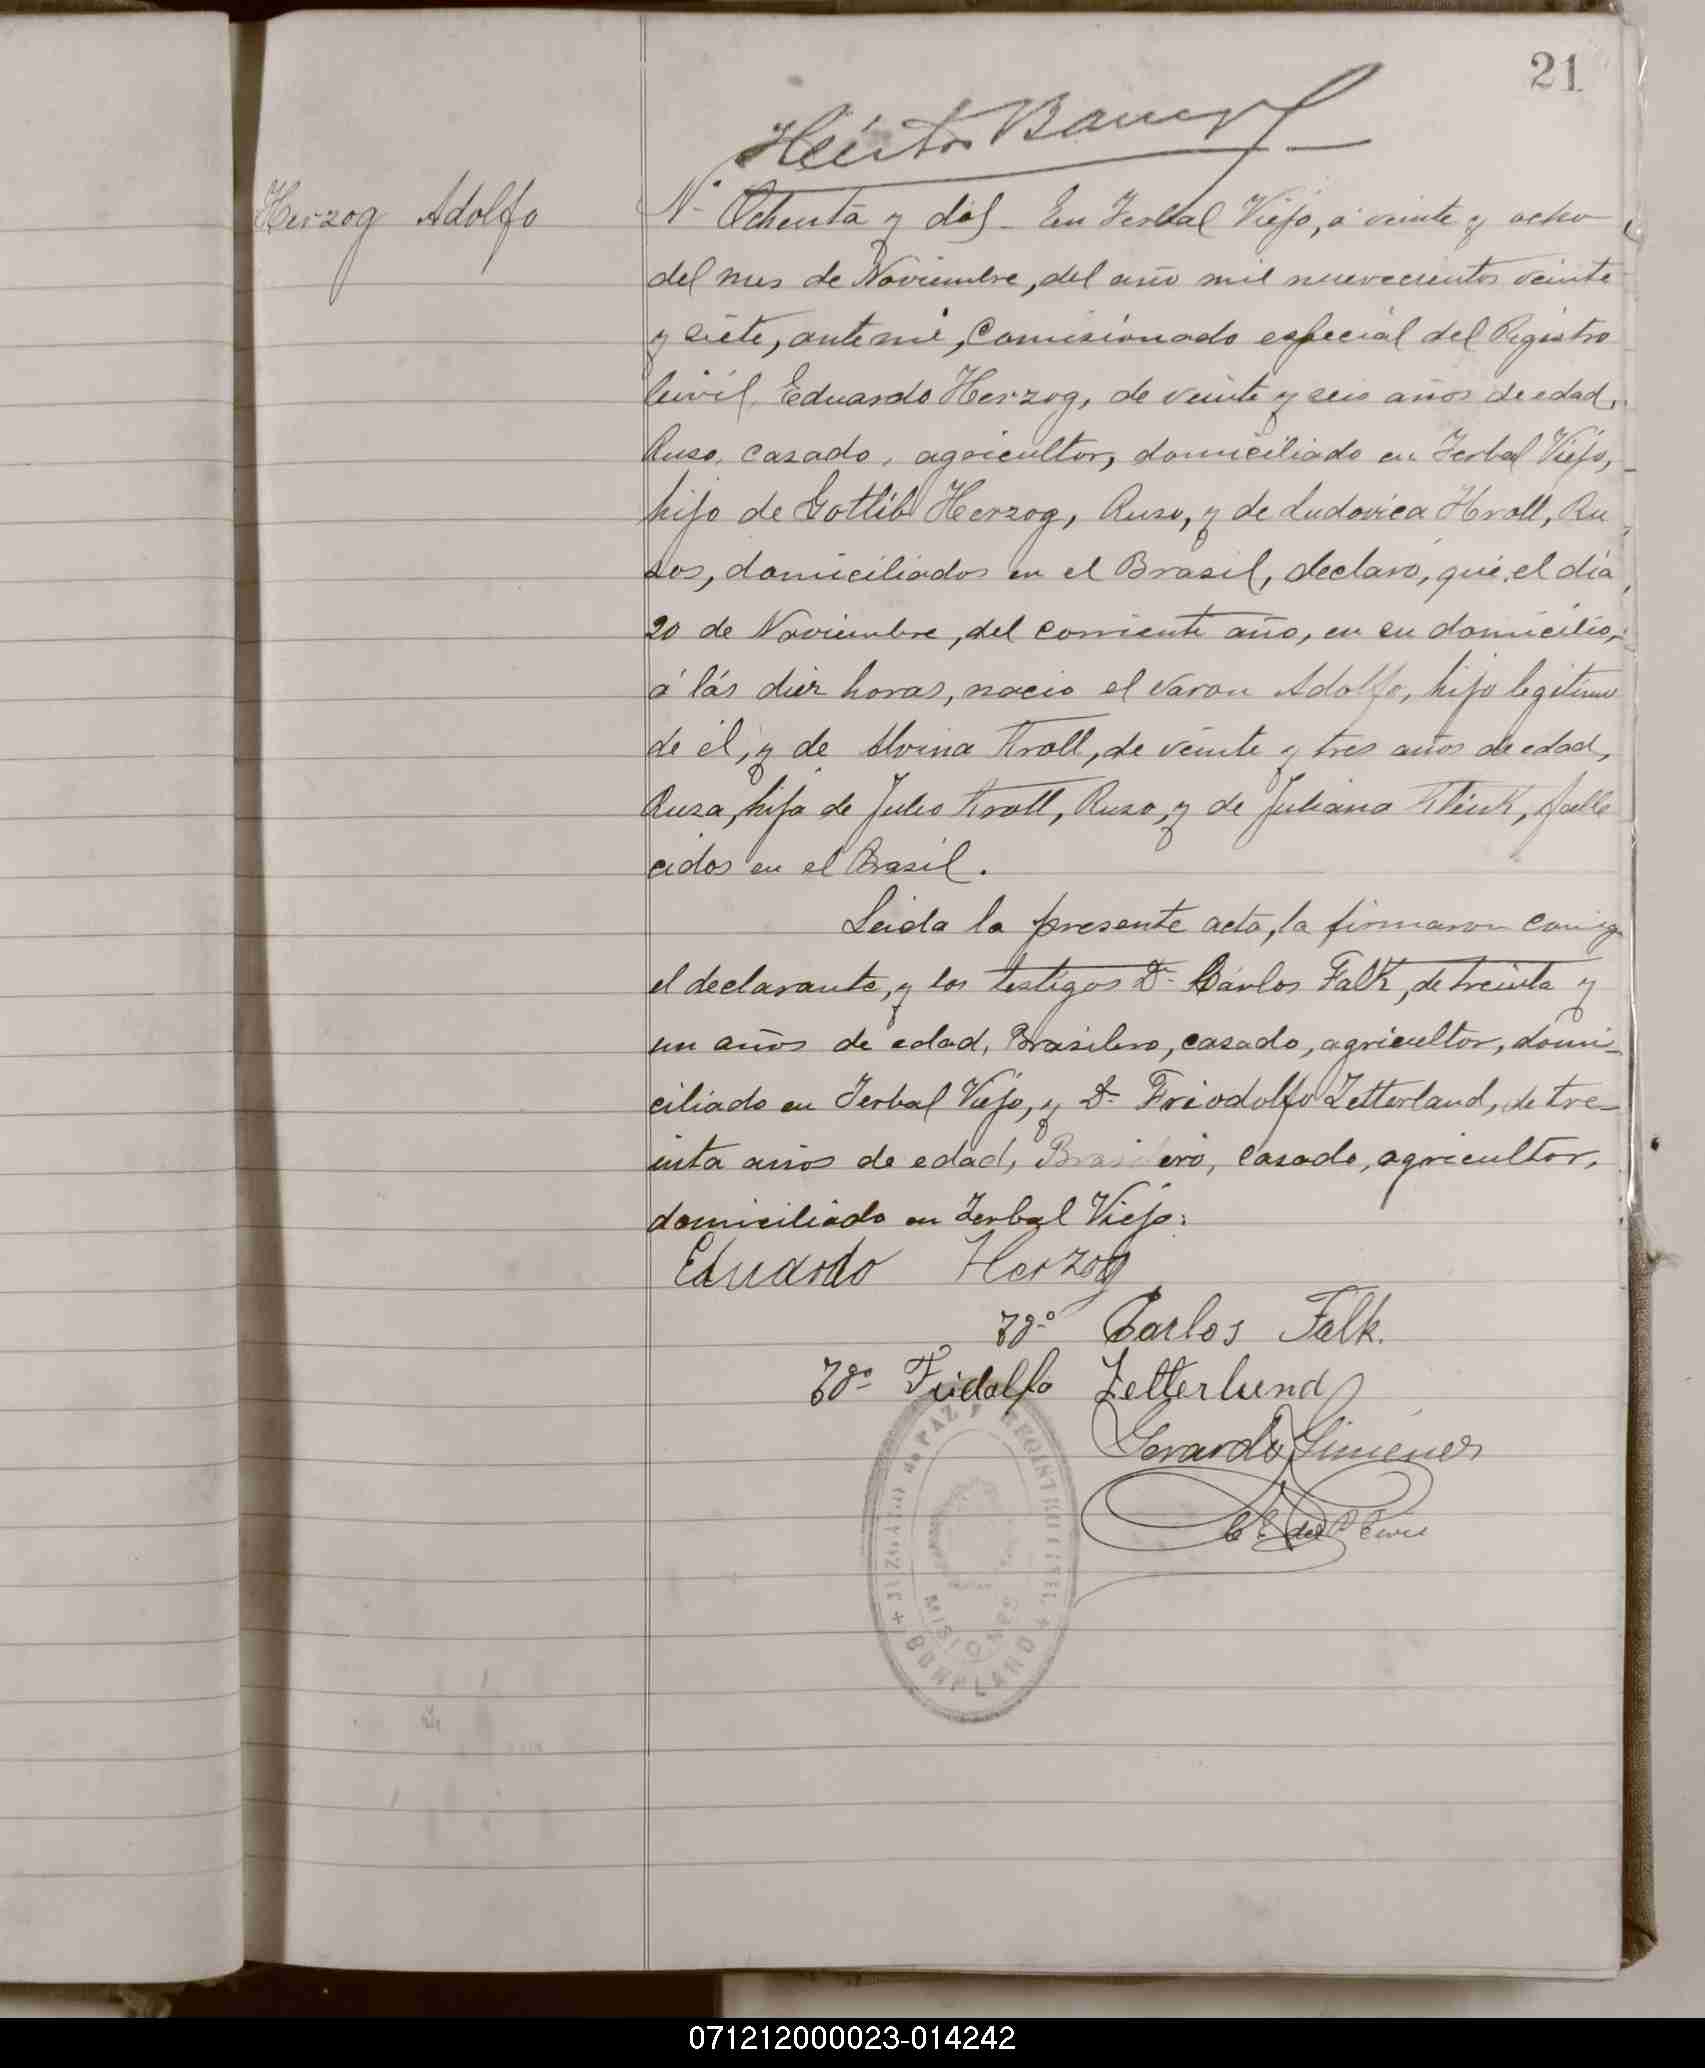 21
Héctor
Herzog Adolfo
Nº Ochenta y dos - En Yerbal Viejo, á veinte y ocho
del mes de Noviembre, del año mil nuevecientos veinte
y siete, ante mi, Comisionado especial del Registro
Civil, Eduardo Herzog, de veinte y seis años de edad,
Ruso, casado, agricultor, domiciliado en Yerbal Viejo,
hijo de Gotlib Herzog, Ruso, y de Ludovica Kroll, Ru
sos, domiciliados en el Brasil, declaró, que, el día
20 de Noviembre, del corriente año, en su domicilio,
á lás diez horas, nacio el varon Adolfo, hijo legitimo
de él, y de Alvina Kroll, de veinte y tres años de edad,
Rusa, hija de Julio Kroll, Ruso, y de Juliana Klink, falle
cidos en el Brasil.
Leida la presente acta, la firmaron conmigo
el declarante, y los testigos Dn Cárlos Falk, de treinta y
un años de edad, Brasilero, casado, agricultor, domi-
ciliado en Yerbal Viejo, y Dn Friodolfo Zetterlund, de tre-
inta años de edad, Brasilero, casado, agricultor,
domiciliado en Yerbal Viejo:
Eduardo Herzog
Tgo. Carlos Falk.
Tgo. Fridolfo Zetterlund
Gerardo Gimenez
C E del R Civil
JUZGADO de PAZ y REGISTRO CIVIL
MISIONES
BONPLAND
071212000023-014242